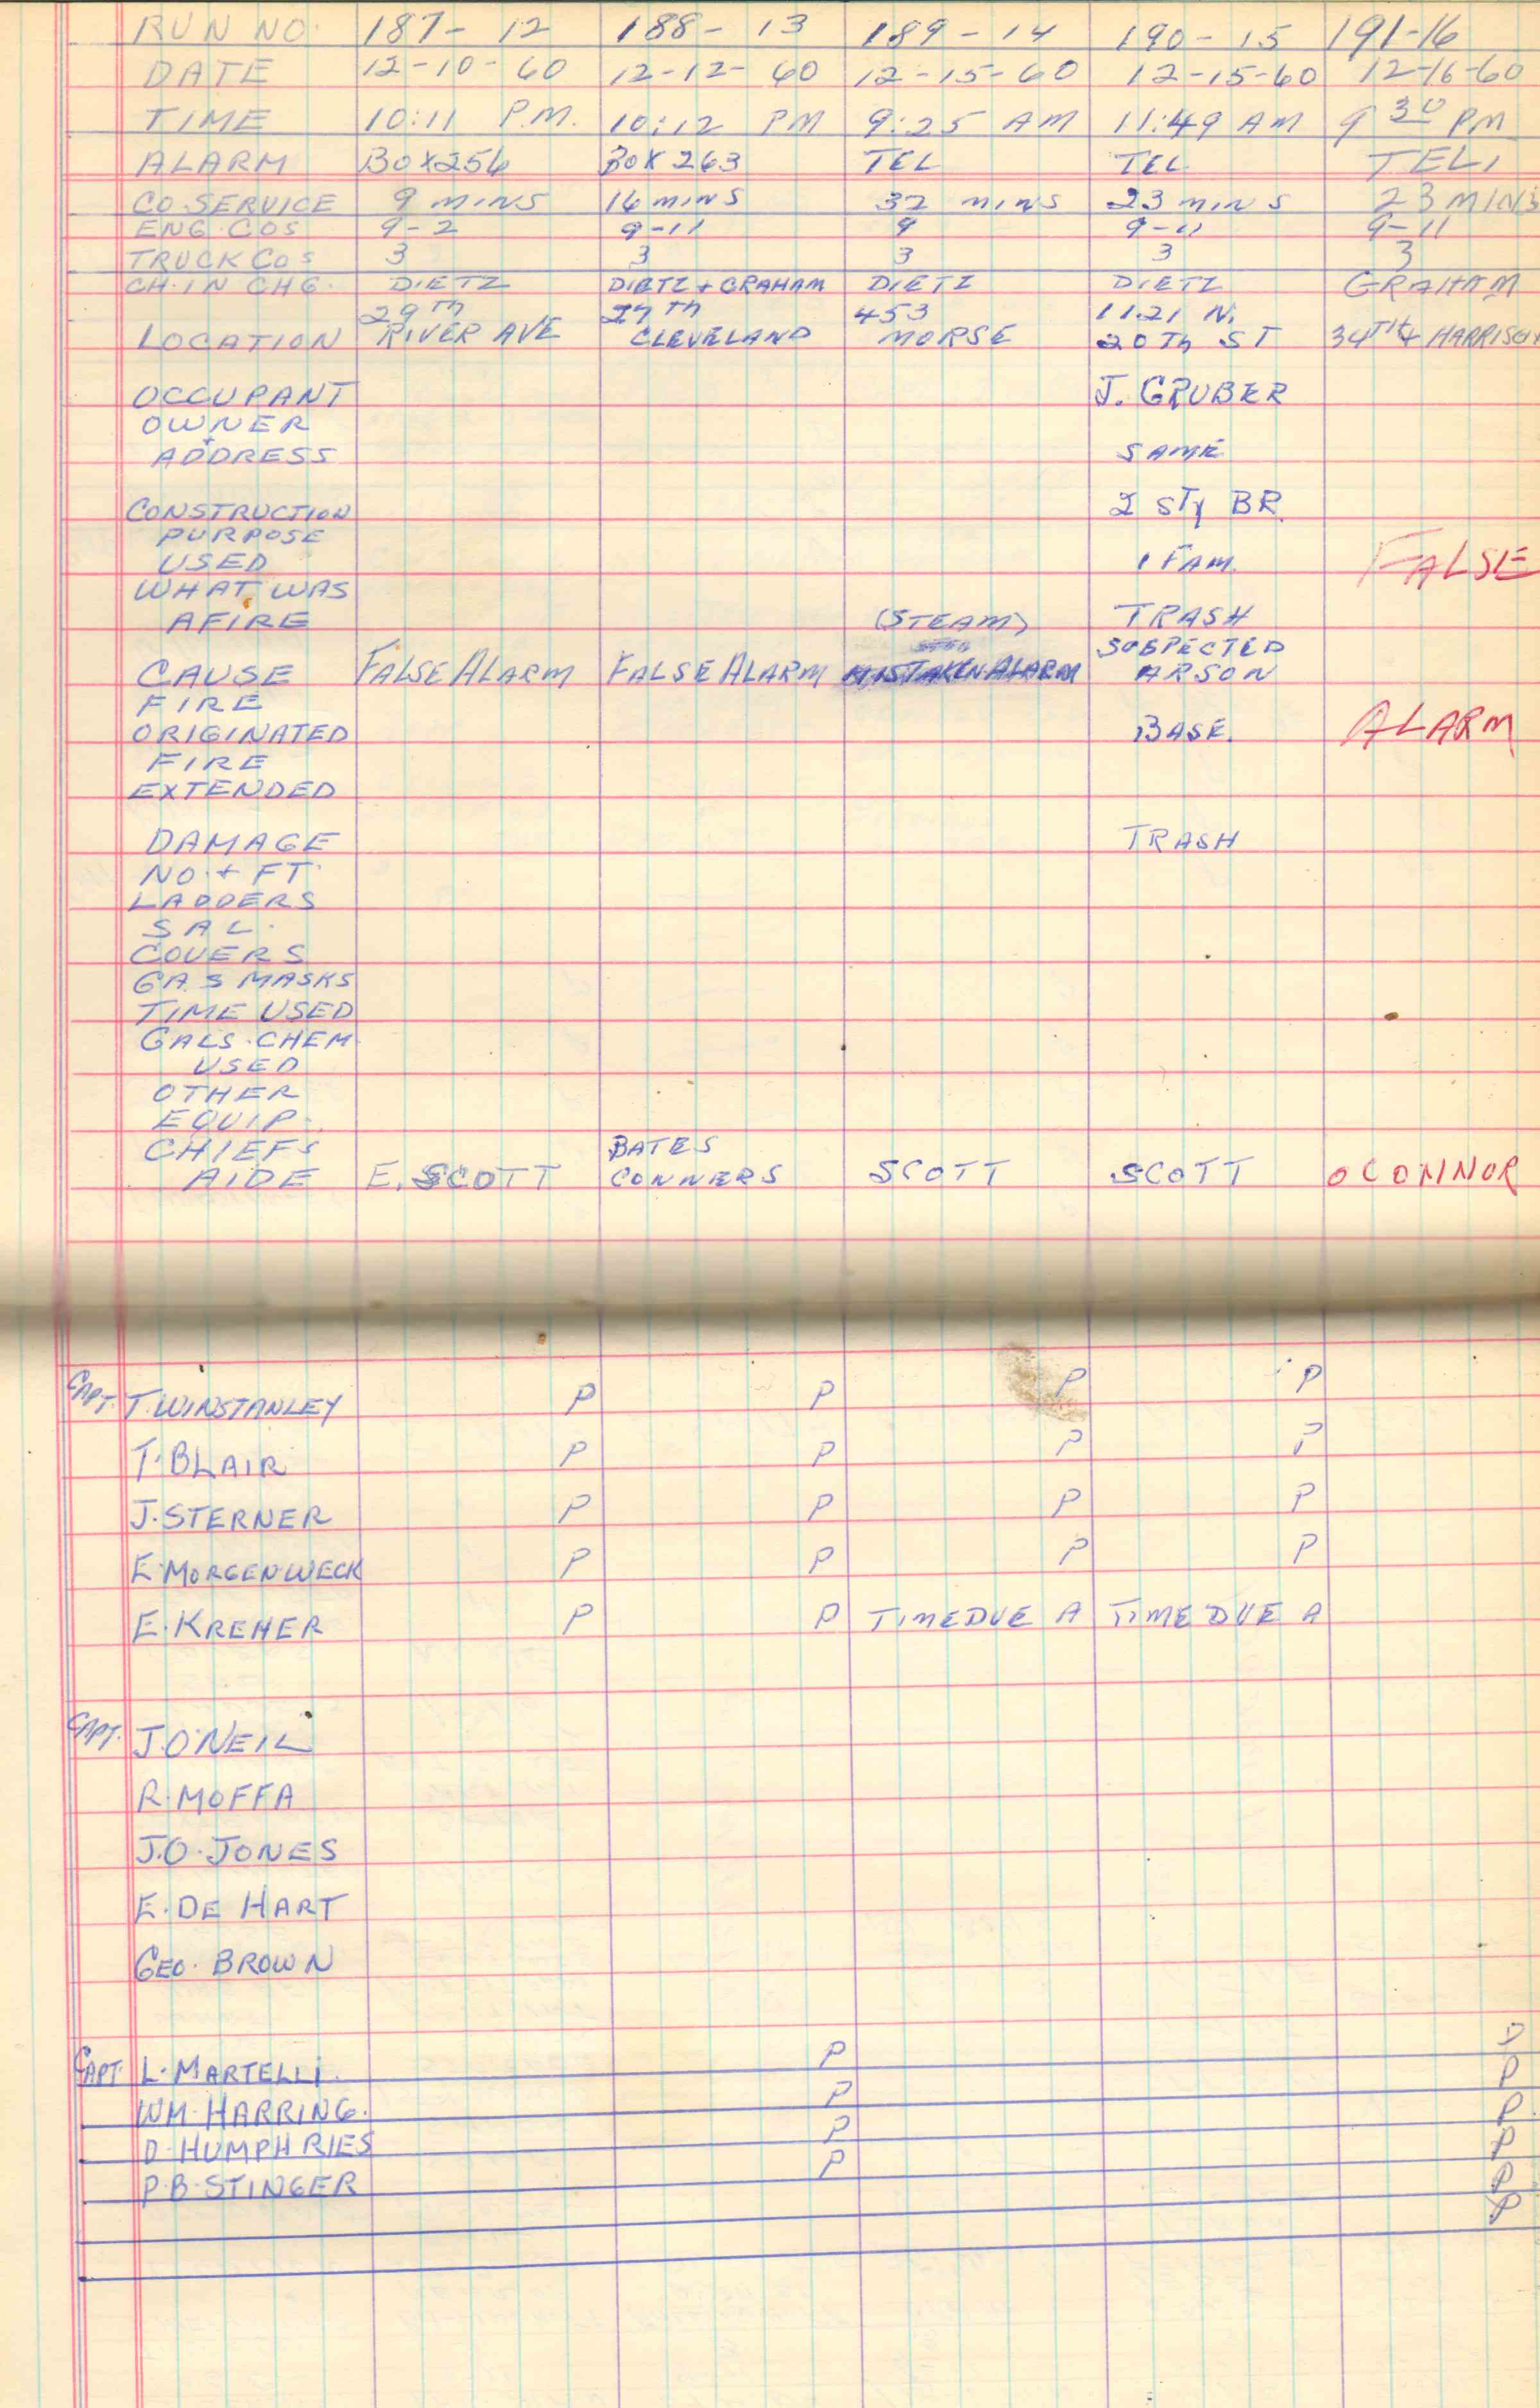 RUN NO. 187-12 188-13 189-14 190-15 191-16
DATE 12-10-60 12-12-60 12-15-60 12-15-60 12-16-60
TIME 10:11 P.M. 10:12 PM 9:25 AM 11:49 AM 9 30 PM
ALARM BOX 256 BOX 263 TEL TEL TEL,
CO. SERVICE 9 MINS 16 MINS 32 MINS 23 MINS 23 MINS
ENG. COS 9-2 9-11 9 9-11 9-11
TRUCK COS 3 3 3 3 3
CH. IN CHG. DIETZ DIETZ + GRAHAM DIETZ DIETZ GRAHAM
29TH 27TH 453 1121 N.
LOCATION RIVER AVE CLEVELAND MORSE 20TH ST 34TH & HARRISON
OCCUPANT J. GRUBER
OWNER
+
ADDRESS SAME
CONSTRUCTION 2 STY BR.
PURPOSE
USED 1 FAM. FALSE
WHAT WAS
AFIRE (STEAM) TRASH
SUSPECTED
CAUSE FALSE ALARM FALSE ALARM MISTAKEN ALARM ARSON
FIRE
ORIGINATED BASE. ALARM
FIRE
EXTENDED
DAMAGE TRASH
NO. + FT.
LADDERS
SAL.
COVERS
GAS MASKS
TIME USED
GALS. CHEM
USED
OTHER
EQUIP.
CHIEFS BATES
AIDE E. SCOTT CONNERS SCOTT SCOTT OCONNOR
CAPT. T. WINSTANLEY P P P P
T. BLAIR P P P P
J. STERNER P P P P
E. MORGENWECK P P P P
E. KREHER P P TIME DUE A TIME DUE A
CAPT. J. O'NEIL
R. MOFFA
J.O. JONES
E. DE HART
GEO. BROWN
CAPT. L. MARTELLI. P P
WM. HARRING. P P
D. HUMPHRIES P P
P.B. STINGER P P
P
P